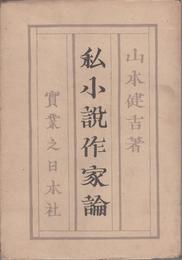 山本健吉著
私小說作家論
實業之日本社